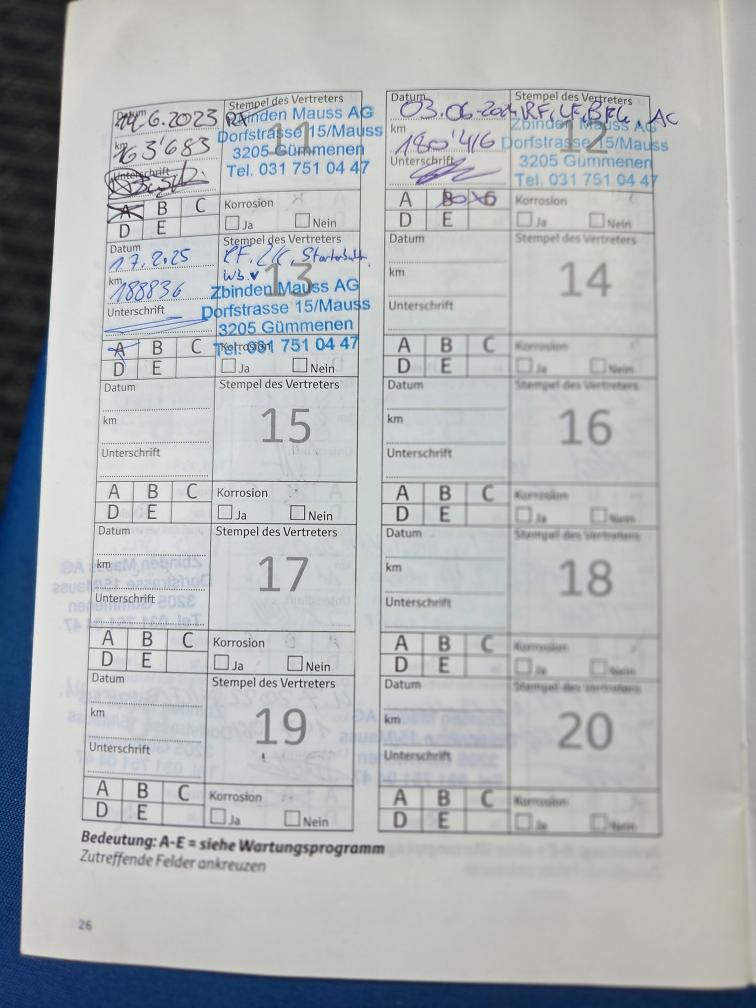 Datum 6.2023
Stempel des Vertreters
Zbinden Mauss AG
km 163'683
Dorfstrasse 15/Mauss
11
3205 Gümmenen
Unterschrift
Tel. 031 751 04 47
A B C
Korrosion
D E
Ja Nein
Datum 03.06.
Stempel des Vertreters
RF, LF, BFL, AC
Zbinden Mauss AG
km 180'416
Dorfstrasse 15/Mauss
12
3205 Gümmenen
Unterschrift
Tel. 031 751 04 47
A
Korrosion
D E
Ja Nein
Datum
17.2.25
Stempel des Vertreters
km
188836
13
Zbinden Mauss AG
Unterschrift
Dorfstrasse 15/Mauss
3205 Gümmenen
Tel. 031 751 04 47
A B C
Korrosion
D E
Ja Nein
Datum
Stempel des Vertreters
km
14
Unterschrift
A B C
Korrosion
D E
Ja Nein
Datum
Stempel des Vertreters
km
15
Unterschrift
A B C
Korrosion
D E
Ja Nein
Datum
Stempel des Vertreters
km
16
Unterschrift
A B C
Korrosion
D E
Ja Nein
Datum
Stempel des Vertreters
km
17
Unterschrift
A B C
Korrosion
D E
Ja Nein
Datum
Stempel des Vertreters
km
18
Unterschrift
A B C
Korrosion
D E
Ja Nein
Datum
Stempel des Vertreters
km
19
Unterschrift
A B C
Korrosion
D E
Ja Nein
Datum
Stempel des Vertreters
km
20
Unterschrift
A B C
Korrosion
D E
Ja Nein
Bedeutung: A-E = siehe Wartungsprogramm
Zutreffende Felder ankreuzen
26